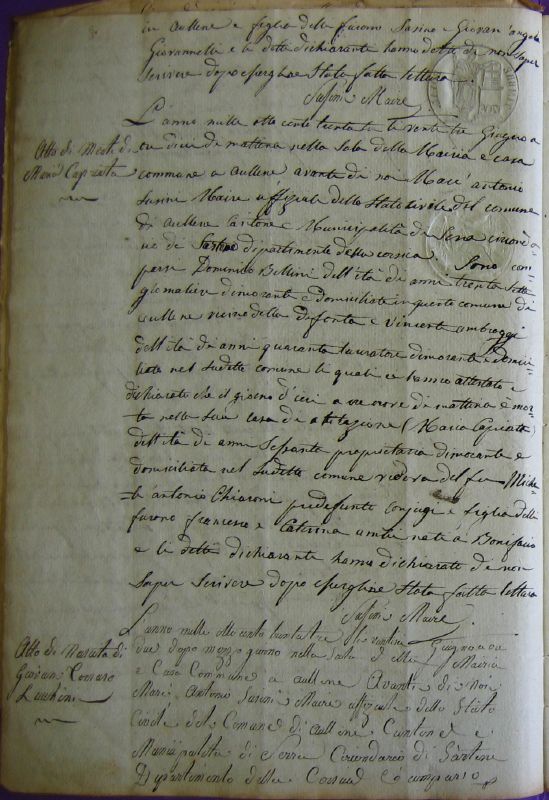 in Aullene e figlio delli furono Sasino e Giovan'angela
Giovannetti e li detti dichiarante hanno detto di non saper
scrivere dopo esserglene stata fatta lettura
Susini Maire
Atto di Morte di
Maria Capiata
L'anno mille otto cento trenta le venti tre Giugno a
ore dieci di mattina nella Sala della Mairia e casa
commune a aullene avante di noi Marc'antonio
Susini Maire uffiziale dello Stato civile del comune
di aullene Cantone e Municipalità di Serra circond
di Sartene dipartimento della corsica. Sono com
parsi Domenico Bellini dell'età di anni trenta sette
giornaliere dimorante e domiciliato in questo comune di
aullene vicino della defonta e Vincente ambroggi
dell'età di anni quaranta lavoratore dimorante e domici
liato nel sudetto comune li quali ci hanno attestato e
dichiarato che il giorno d'ieri a ore nove di mattina è mor
ta nella sua casa di abitazione Maria Capiata
dell'età di anni sessanta proprietaria dimorante e
domiciliata nel sudetto comune vedova del fu Miche
l'antonio Chiaroni predefunto conjuge e figlia delli
furono francesco e Caterina ambi nati a Bonifacio
e li detti dichiarante hanno dichiarato di non
saper scrivere dopo esserglene stata fatta lettura
Susini Maire
Atto di Nascita di
Giovanni
Lucchini
L'anno mille otto cento le ventitre Giugno a ore
due dopo mezzo giorno nella Sala della Mairia
e Casa Commune a aullene Avanti di Noi
Marc' Antonio Susini Maire uffiziale dello Stato
Civile del Comune di aullene Cantone e
Municipalità di Serra Circondario di Sartene
Dipartimento della Corsica è comparso